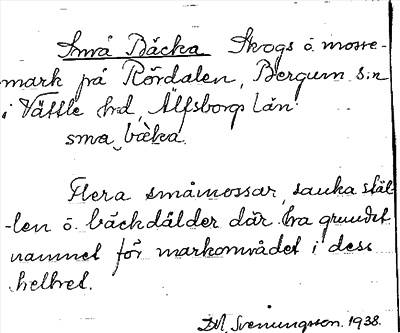 Små Bäcka Skogs ö. mosse-
mark på Rördalen, Bergum s:n
i Vättle hrd, Älfsborgs län.
sma bäka.
Flera småmossar, sanka stäl-
-len ö. bäckdälder där ha grundet
namnet för markområdet i dess
helhet.
Svenungsson. 1938.